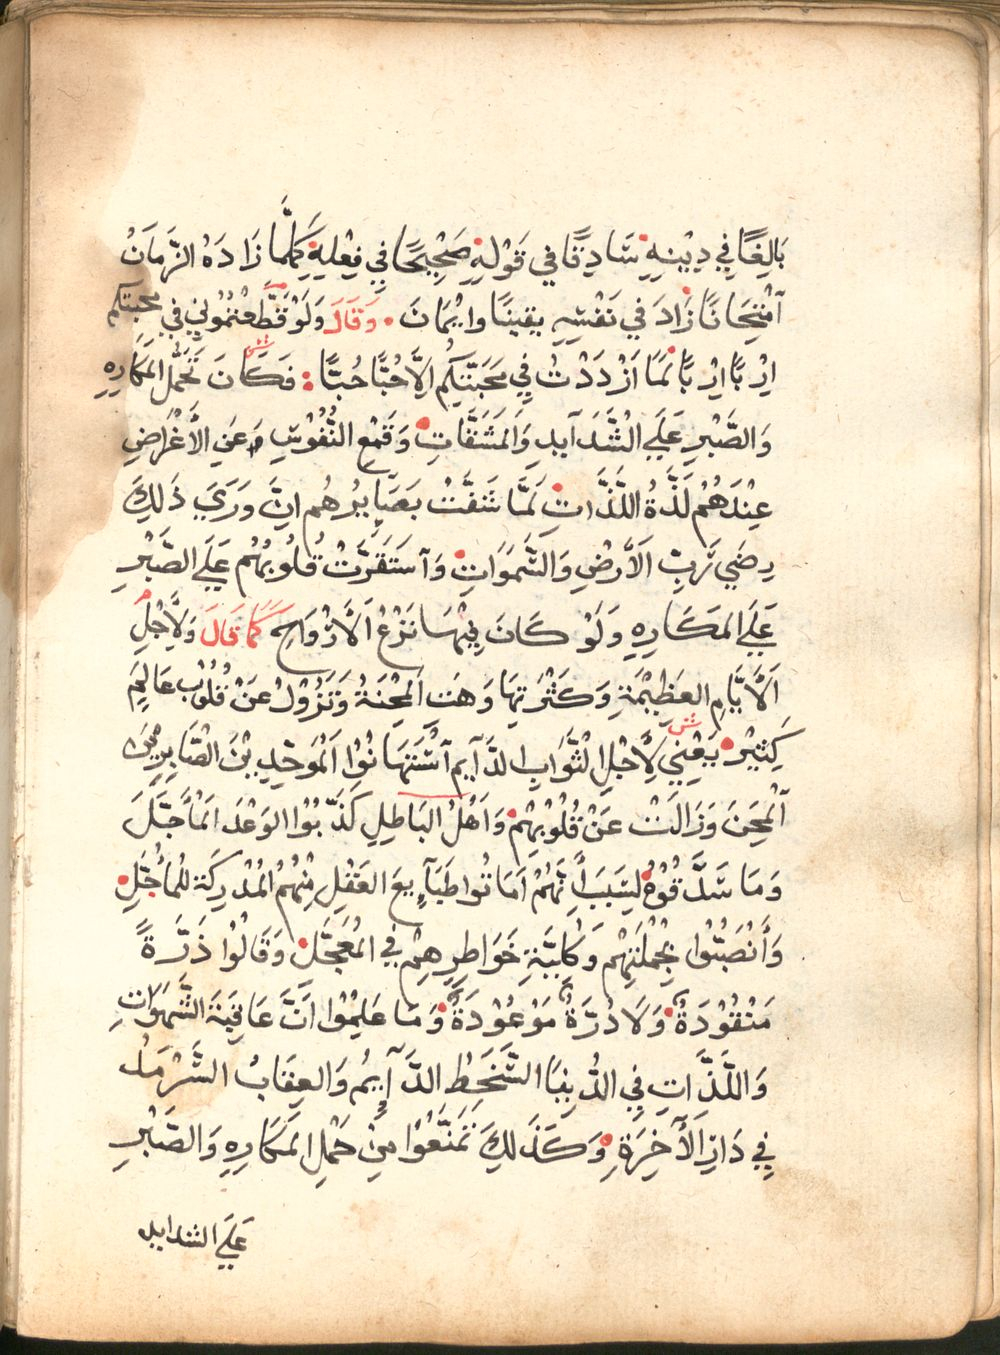 بَالِغًا فِي دِيْنِهِ سَادِقًا في قَوْلِهِ صَحِيْحًا فِي فِعْلِهِ كَلَّمَا زَادَهُ الزَّمَانُ
آمْتِحَانًا زَادَ في نَفْسِهِ يقينًا وايْمَانَ وَقَالَ وَلَوْ قَطَّعْتُمُوْنِي في محبتكم
اِرْبًا اِرْبًا لَمَا اَزْدَدْتُ فِي مَحَبَّتِكُم اِلَّا حُبًّا حُبًّا فَكَانَ تَحَمُّل المَكَارِهِ
شش
وَالصَّبْرِ عَلَي الْشَّدَآيدِ وَالمَشَقَّاتِ وَقَمْعِ النُّفُوْسِ عَنِ الأَغْرَاضِ
عِنْدَهُمْ لَذَّةُ اللَّذَّاتِ لَمَّا شَفَّتْ بَصَايِرُهُم اِنَّ وَرَيَ ذَلِكَ
رِضَي رَبِّ اَلَأرْضِ وَالسَّمَوَاتِ وَآسْتَقَرَّتْ قُلُوبُهُمْ عَلَي الصَّبْرِ
عَلَي المَكَارِهِ وَلَوْ كَانَ فِيْهَا نَزْعُ اَلأَرْوَاحِ كَمَا قَالَ وَلَأَجْلِ
اَلأَيَّامِ العَظِيْمَةِ وَكَثْرَتِهَا وَهَت المِحْنَةُ وَتَزُوْلُ عَنْ قُلُوْبِ عَالَمٍ
كَثِيْر يَعْنِي لِأَجْلِ الْثَّوَابِ الدَّآيم آسْتَهَانُوْا اَلْمُوَحِّدِيْنَ الْصَّابِرِيْنَ
شش
آلْمِحَنَ وَزَالَتْ عَنْ قُلُوْبِهِمْ وَاَهْلُ البَاطِلِ كَذَّبُوْا الوَعْدَ المْأَجَّلَ
وَمَا سَدَّقُوْهُ لِسَبَبَ أَنَّهُمْ اَمَاتُوا طَبَآيِعَ العَقْلِ مِنْهُمُ المُدْرِكَة لِلمُأَجَّلِ
وَأَنْصَبُّوْا بِجُمْلَتِهِمْ وَكُلِيَّةِ خَوَاطِرِهِمْ فِي المُعَجَّلِ وَقَالُوْا ذَرَّةً
مَنْقُوْدَةٌ وَلَا دُرَّةً مَوْعُوْدَةً وَمَا عَلِمُوْا اَنَّ عَاقِبَةَ الشَّهَوَاتِ
وَاللَّذَّاتِ فِي الدُّنِيَا السَّخَطُ الدَّآيِمُ وَالعِقَابُ السَّرْمَدُ
فِي دَارِ اَلأَخِرَةِ وَكَذَلِكَ تَمَنَّعُوْا مِنْ حَمْلِ المَكَارِهِ وَالصَّبْرِ
عَلَي الشدايد